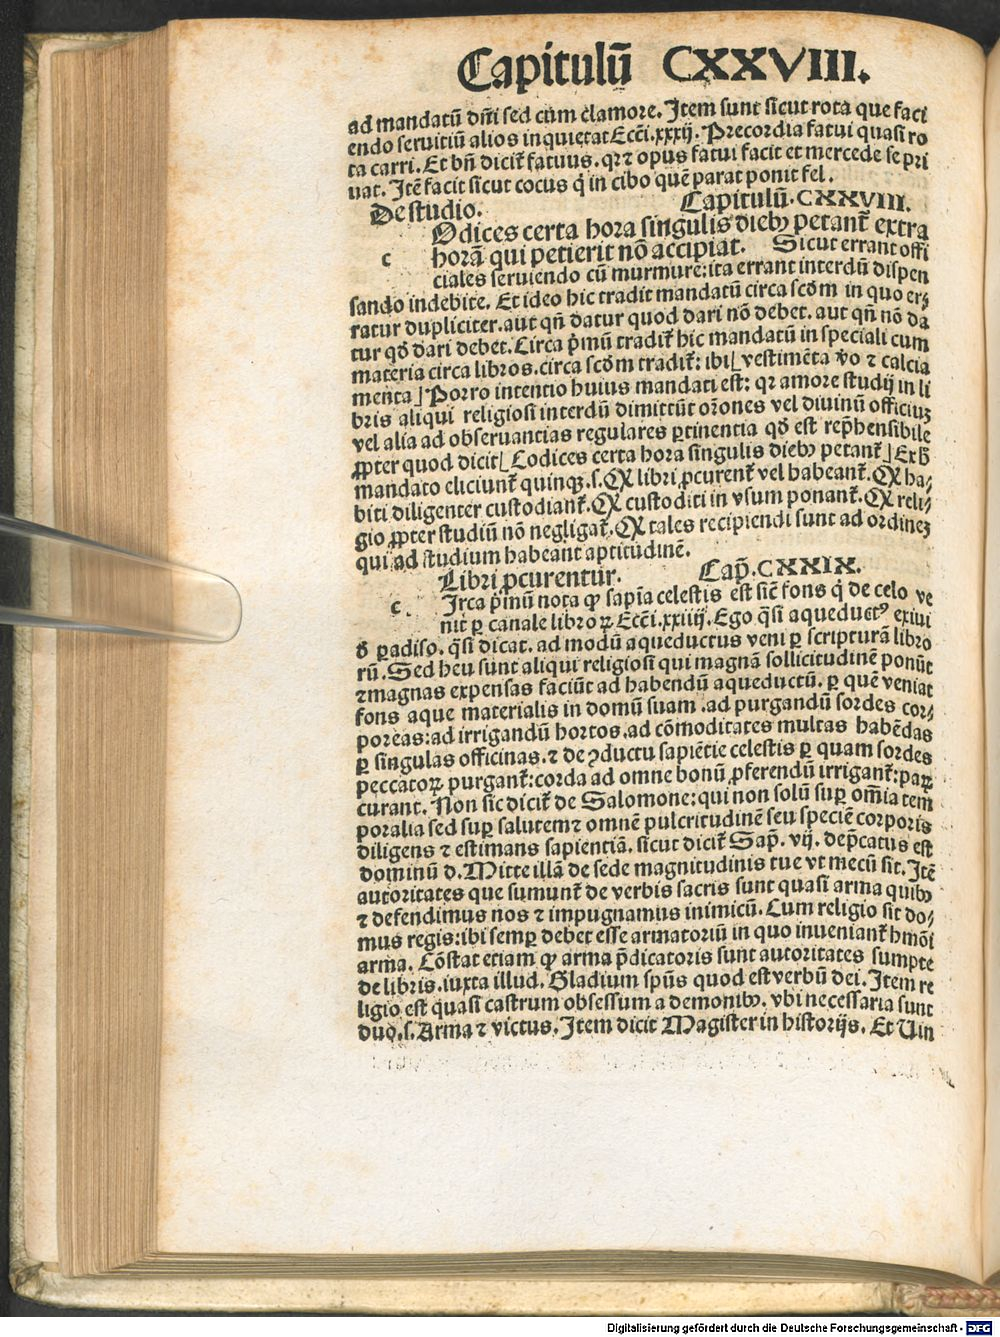 Capitulū CXXVIII.
ad mandatū dn̄i sed cum clamore. Item sunt sicut rota que faci
endo seruitiū alios inquietat Ecci. xxxij. Precordia fatui quasi ro
ta carri. Et bn̄ dicit̄ fatuus. qꝛ ⁊ opus fatui facit et mercede se pri
uat. Itē facit sicut cocus q̄ in cibo quē parat ponit fel.
De studio. Capitulū. CXXVIII.
Odices certa hora singulis dieb⁹ petant̄ extra
c horā qui petierit nō accipiat. Sicut errant offi
ciales seruiendo cū murmure: ita errant interdū dispen
sando indebite. Et ideo hic tradit mandatū circa scd̄m in quo er⸗
ratur dupliciter. aut qn̄ datur quod dari nō debet. aut qn̄ nō da
tur qd̄ dari debet. Circa p̄mū tradit̄ hic mandatū in speciali cum
materia circa libros. circa scd̄m tradit̄: ibi[ vestimēta v̄o ⁊ calcia
menta] Porro intentio huius mandati est: qꝛ amore studij in li
bris aliqui religiosi interdū dimittūt or̄ones vel diuinū officiuꝫ
vel alia ad obseruantias regulares ꝑtinentia qd̄ est rep̄hensibile
ꝓpter quod dicit[ Codices certa hora singulis dieb⁹ petant̄] Ex h̄
mandato eliciunt̄ quinqꝫ. s. Qꝙ libri ꝓcurent̄ vel habeant̄. Qꝙ ha⸗
biti diligenter custodiant̄. Qꝙ custoditi in vsum ponant̄. Qꝙ reli⸗
gio ꝓpter studiū nō negligat̄. Qꝙ tales recipiendi sunt ad ordineꝫ
qui ad studium habeant aptitudinē.
Libri ꝓcurentur. Cap̄. CXXIX.
c Irca p̄mū nota ꝙ sapīa celestis est sic̄ fons q̄ de celo ve
nit ꝑ canale libroꝝ Ecci. xxiiij. Ego q̄si aqueduct⁹ exiui
d̄ ꝑadiso. q̄si dicat. ad modū aqueductus veni ꝑ scripturā libro
rū. Sed heu sunt aliqui religiosi qui magnā sollicitudinē ponūt
⁊ magnas expensas faciūt ad habendū aqueductū. ꝑ quē veniat
fons aque materialis in domū suam. ad purgandū sordes cor⸗
poreas: ad irrigandū hortos. ad cōmoditates multas habēdas
ꝑ singulas officinas. ⁊ de ꝯductu sapiētie celestis ꝑ quam sordes
peccatoꝝ purgant̄: corda ad omne bonū ꝓferendū irrigant̄: paꝝ
curant. Non sic dicit̄ de Salomone: qui non solū suꝑ om̄ia tem
poralia sed suꝑ salutem ⁊ omnē pulcritudinē seu speciē corporis
diligens ⁊ estimans sapientiā. sicut dicit̄ Sap̄. vij. dep̄catus est
dominū d. Mitte illā de sede magnitudinis tue vt mecū sit. Itē
autoritates que sumunt̄ de verbis sacris sunt quasi arma quib⁹
⁊ defendimus nos ⁊ impugnamus inimicū. Cum religio sit do⸗
mus regis: ibi semꝑ debet esse armatoriū in quo inueniant̄ hmōi
arma. Cōstat etiam ꝙ arma p̄dicatoris sunt autoritates sumpte
de libris. iuxta illud. Gladium spūs quod est verbū dei. Item re
ligio est quasi castrum obsessum a demonib⁹. vbi necessaria sunt
duo. s. Arma ⁊ victus. Item dicit Magister in historijs. Et Uin
Digitalisierung gefördert durch die Deutsche Forschungsgemeinschaft - DFG